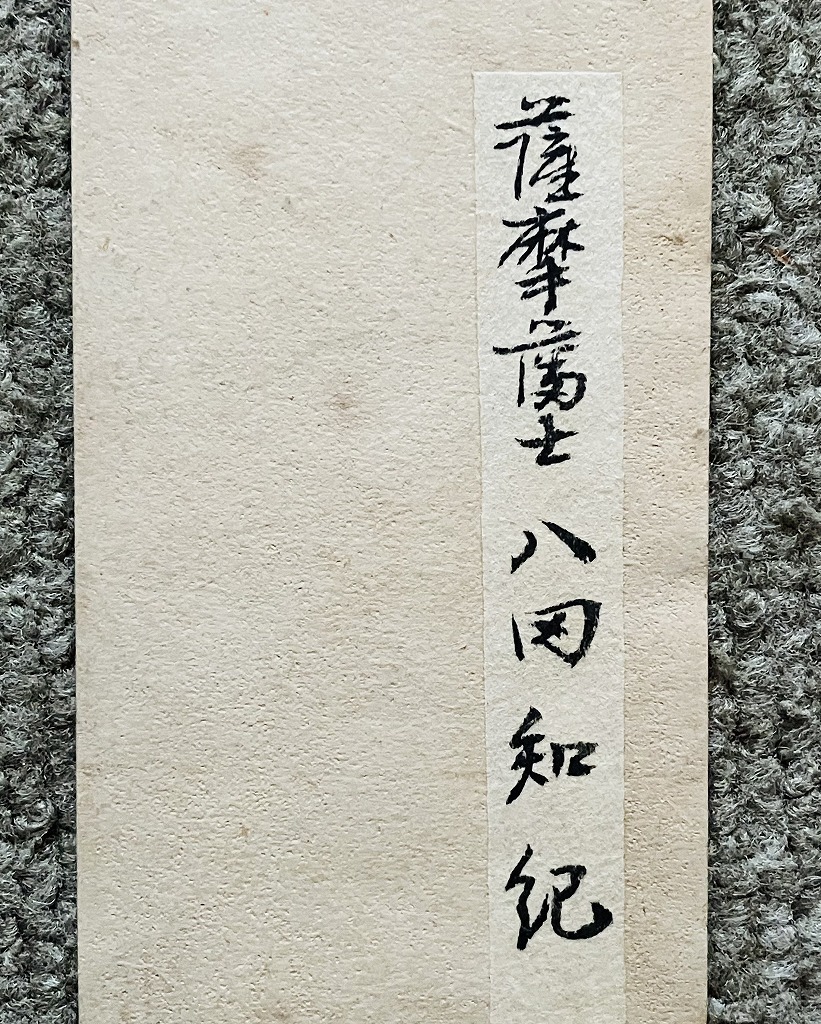 薩摩藩士 八田知紀